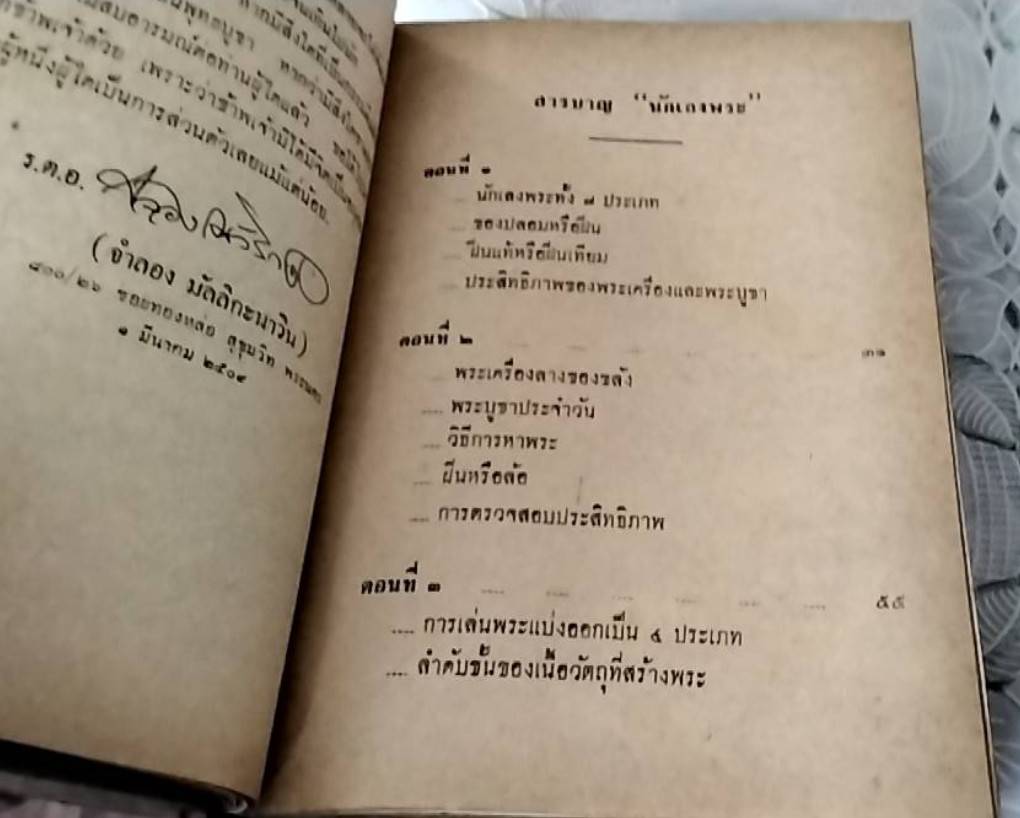 ร.ต.อ.
(จำลอง มัลลิกะนาวิน)
๔๐๐/๒๖ ซอยทองหล่อ สุขุมวิท พระนคร
๑ มีนาคม ๒๕๐๙
เพราะว่าข้าพเจ้ามิได้มี
ผู้หนึ่งผู้ใดเป็นการส่วนตัวเลยแม้แต่น้อย.
สารบาญ “นักเลงพระ”
ตอนที่ ๑
นักเลงพระทั้ง ๗ ประเภท
ของปลอมหรือฝืน
ฝืนแท้หรือฝืนเทียม
ประสิทธิภาพของพระเครื่องและพระบูชา
ตอนที่ ๒ ๓๑
พระเครื่องลางของขลัง
.... พระบูชาประจำวัน
.... วิธีการหาพระ
.... ฝืนหรือล้อ
.... การตรวจสอบประสิทธิภาพ
ตอนที่ ๓ .... .... .... .... .... .... ๕๕
.... การเล่นพระแบ่งออกเป็น ๔ ประเภท
.... ลำดับชั้นของเนื้อวัตถุที่สร้างพระ